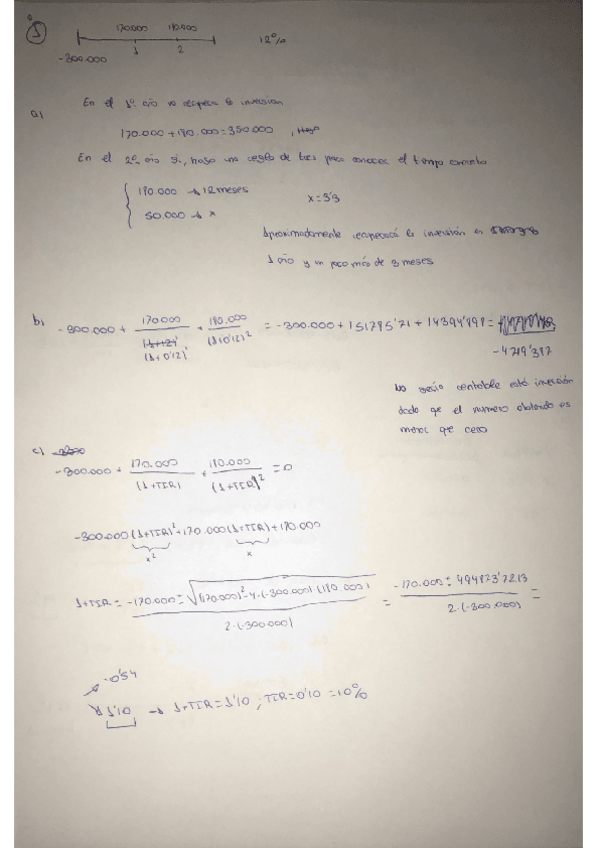 5
170.000 180.000
1 2
12%
-300.000
a) En el 1º año no recupera la inversion
170.000 + 180.000 = 350.000,
En el 2º año si, hago una regla de tres para conocer el tiempo
180.000 → 12 meses
50.000 → x
x = 3'3
Aproximadamente recuperará la inversión en
1 año y un poco más de 3 meses
b) -300.000 + 170.000 / (1+0'12)¹ + 180.000 / (1+0'12)² = -300.000 + 151785'71 + 143494'898 =
-4719'387
No sería rentable está inversión
dado que el numero obtenido es
menor que cero
c)
-300.000 + 170.000 / (1+TIR) + 180.000 / (1+TIR)² = 0
-300.000 (1+TIR)² + 170.000 (1+TIR) + 180.000
x² x
1+TIR = -170.000 ± √(170.000)² - 4·(-300.000)·(180.000) / 2·(-300.000) = -170.000 ± 494873'7213 / 2·(-300.000) =
-0'54
1'10 → 1+TIR = 1'10 ; TIR = 0'10 = 10%